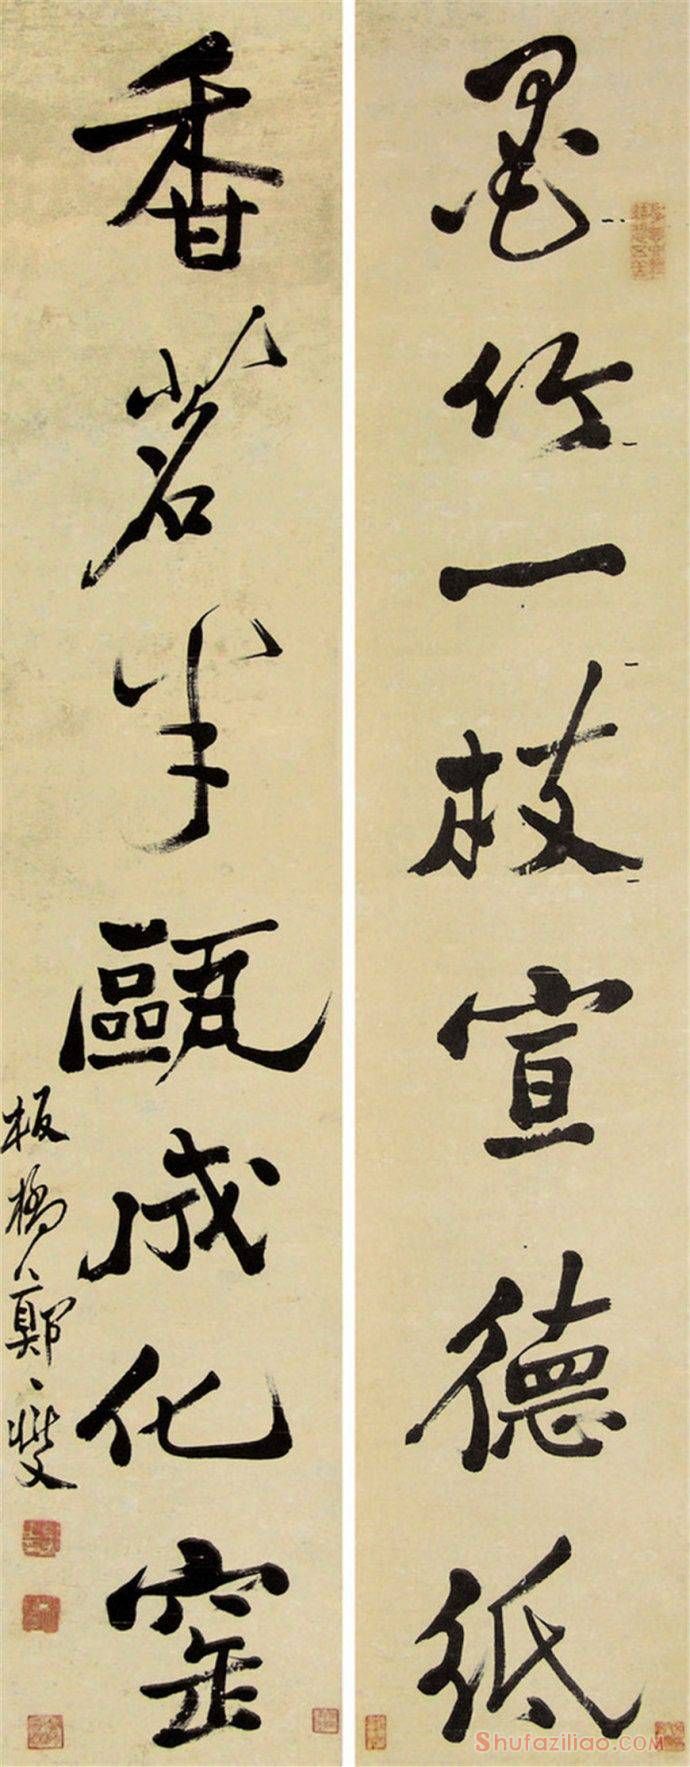 墨竹一枝宣德纸
香茗半甌成化窑
板橋鄭燮
Shufaziliao.com